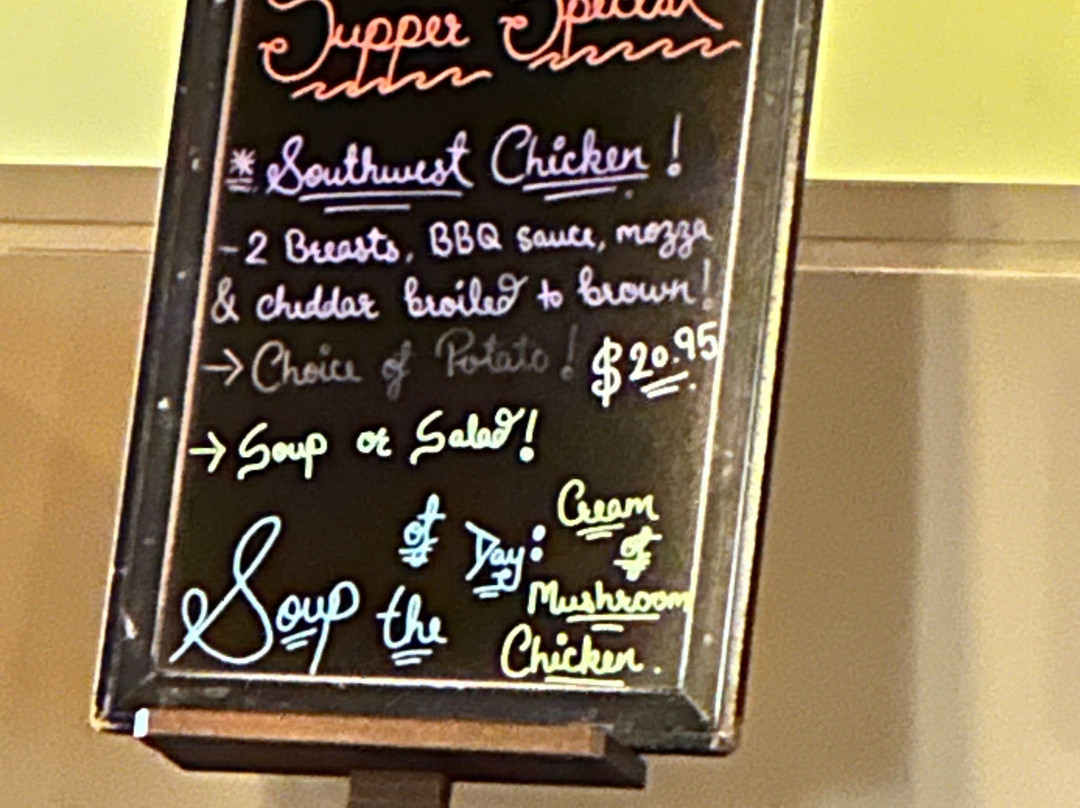 Supper Special
* Southwest Chicken!
- 2 Breasts, BBQ sauce, mozza
& cheddar broiled to brown!
→ Choice of Potato! $20.95
→ Soup or Salad!
Soup of the Day: Cream
of
Mushroom
Chicken.